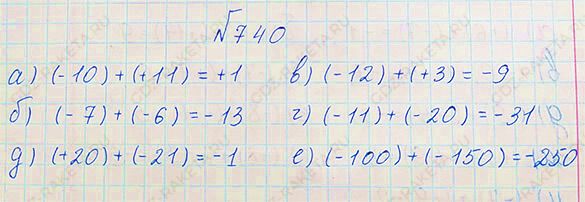 №740
а) (-10) + (+11) = +1 в) (-12) + (+3) = -9
б) (-7) + (-6) = -13 г) (-11) + (-20) = -31
д) (+20) + (-21) = -1 е) (-100) + (-150) = -250